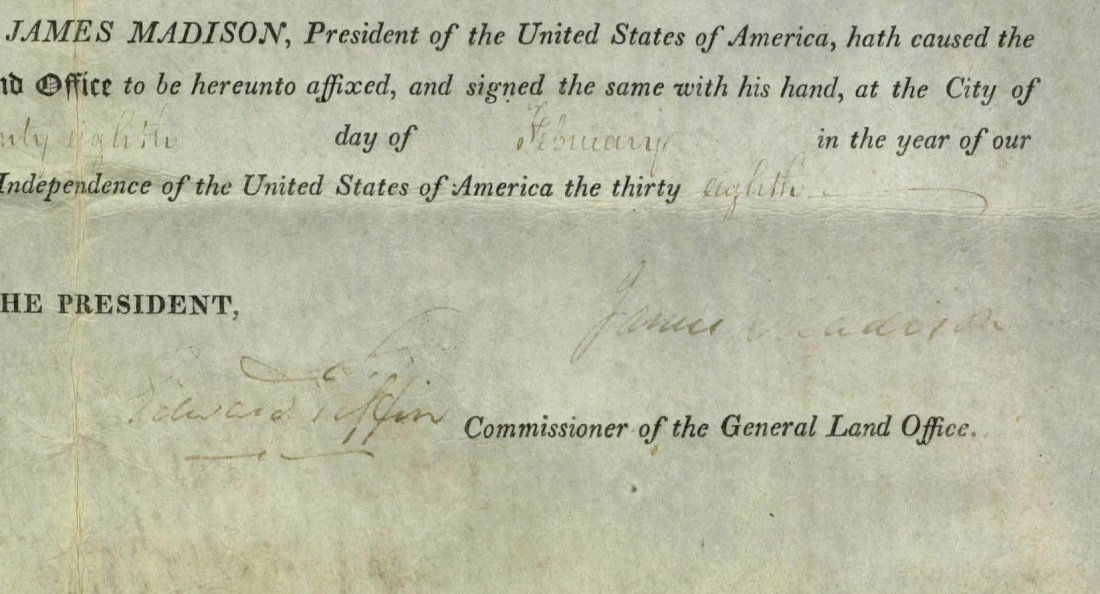 JAMES MADISON, President of the United States of America, hath caused the
nd Office to be hereunto affixed, and signed the same with his hand, at the City of
nty eighth day of February in the year of our
Independence of the United States of America the thirty eighth
HE PRESIDENT,
James Madison
Edward Tiffin Commissioner of the General Land Office.